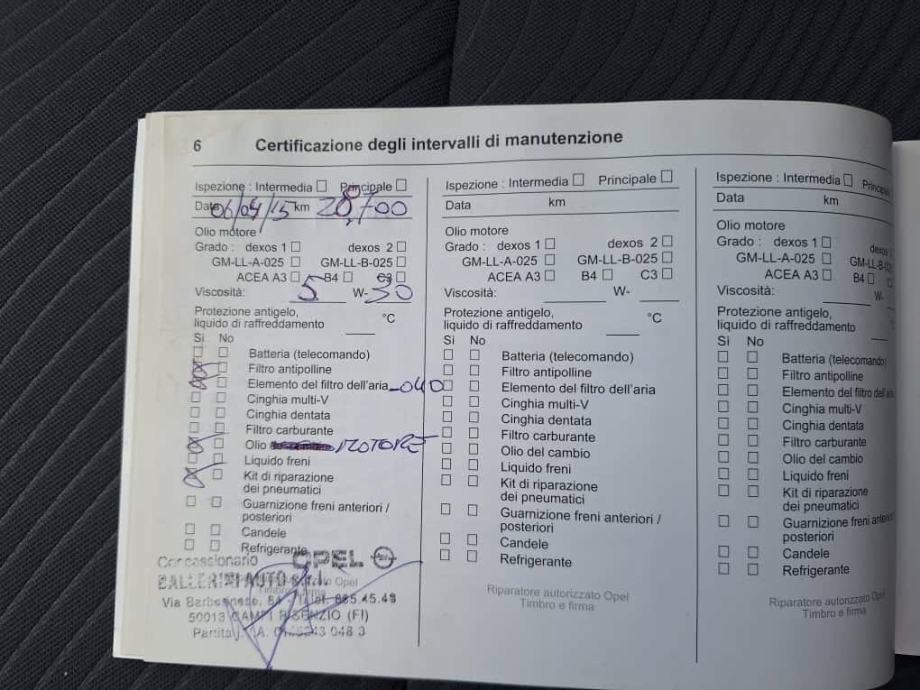 6 Certificazione degli intervalli di manutenzione
Ispezione : Intermedia Principale
Data 06/04/15 km
Olio motore
Grado : dexos 1 dexos 2
GM-LL-A-025 GM-LL-B-025
ACEA A3 B4 C3
Viscosità: 5 W- 30
Protezione antigelo,
liquido di raffreddamento °C
Si No
Batteria (telecomando)
Filtro antipolline
Elemento del filtro dell'aria
Cinghia multi-V
Cinghia dentata
Filtro carburante
Olio MOTORE
Liquido freni
Kit di riparazione
dei pneumatici
Guarnizione freni anteriori /
posteriori
Candele
Refrigerante
Concessionario OPEL
BALLERINI AUTO s.r.l.
Via 64 Telef. 895.45.49
50013 CAMPI BISENZIO (FI)
Partita 048 3
Ispezione : Intermedia Principale
Data km
Olio motore
Grado : dexos 1 dexos 2
GM-LL-A-025 GM-LL-B-025
ACEA A3 B4 C3
Viscosità: W-
Protezione antigelo,
liquido di raffreddamento °C
Si No
Batteria (telecomando)
Filtro antipolline
Elemento del filtro dell'aria
Cinghia multi-V
Cinghia dentata
Filtro carburante
Olio del cambio
Liquido freni
Kit di riparazione
dei pneumatici
Guarnizione freni anteriori /
posteriori
Candele
Refrigerante
Riparatore autorizzato Opel
Timbro e firma
Ispezione : Intermedia Principale
Data km
Olio motore
Grado : dexos 1 dexos
GM-LL-A-025 GM-LL-B-025
ACEA A3 B4 C
Viscosità: W-
Protezione antigelo,
liquido di raffreddamento
Si No
Batteria (telecomando)
Filtro antipolline
Elemento del filtro dell'a
Cinghia multi-V
Cinghia dentata
Filtro carburante
Olio del cambio
Liquido freni
Kit di riparazione
dei pneumatici
Guarnizione freni anteriori
posteriori
Candele
Refrigerante
Riparatore autorizzato Opel
Timbro e firma